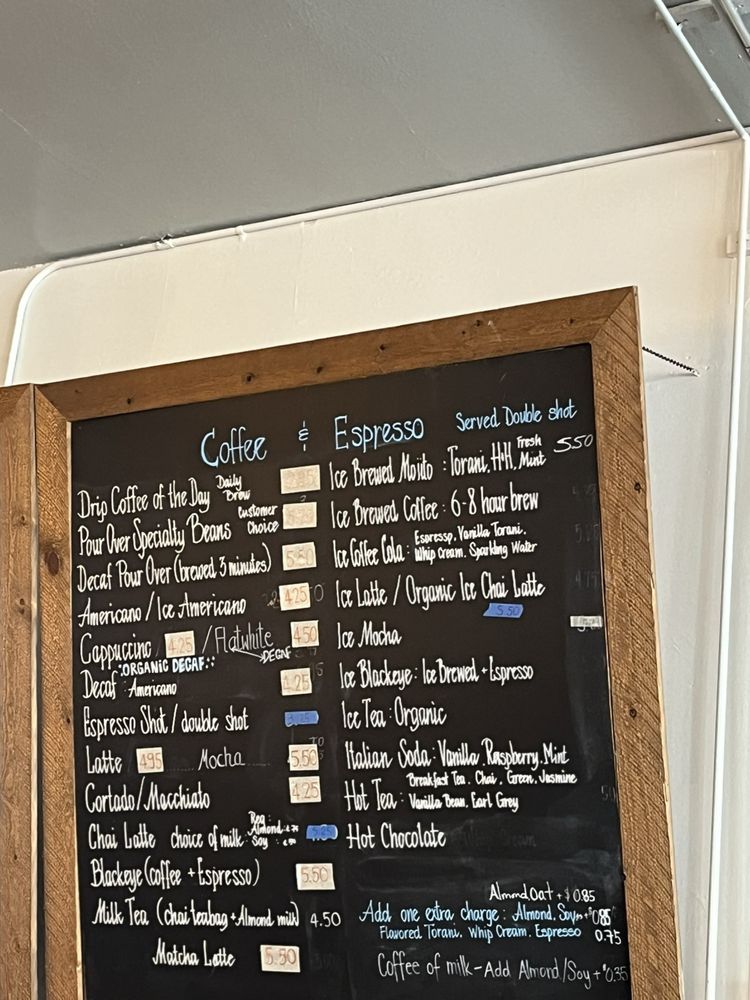 Coffee & Espresso Served Double shot
Drip Coffee of the Day Daily Brew
Pour Over Specialty Beans Customer Choice
Decaf Pour Over (brewed 3 minutes) 5.50
Americano / Ice Americano 4.25
Cappuccino 4.25 / Flatwhite 4.50
Decaf :ORGANIC DECAF:: Americano DECAF 4.25
Espresso Shot / double shot
Latte 4.95 Mocha 5.50
Cortado / Macchiato 4.25
Chai Latte choice of milk: Reg Almond Soy 5.25
Blackeye (coffee + Espresso) 5.50
Milk Tea (chai teabag + Almond milk) 4.50
Matcha Latte 5.50
Ice Brewed Mojito : Torani, H+H, Fresh Mint 5.50
Ice Brewed Coffee : 6-8 hour brew
Ice Coffee Cola : Espresso, Vanilla Torani,
Whip Cream, Sparkling Water
Ice Latte / Organic Ice Chai Latte
5.50
Ice Mocha
Ice Blackeye: Ice Brewed + Espresso
Ice Tea : Organic
Italian Soda : Vanilla, Raspberry, Mint
Hot Tea : Breakfast Tea, Chai, Green, Jasmine
Vanilla Bean, Earl Grey
Hot Chocolate
Almond, Oat + $0.85
Add one extra charge : Almond, Soy + $0.85
Flavored Torani, Whip Cream, Espresso 0.75
Coffee of milk - Add Almond/Soy + $0.35